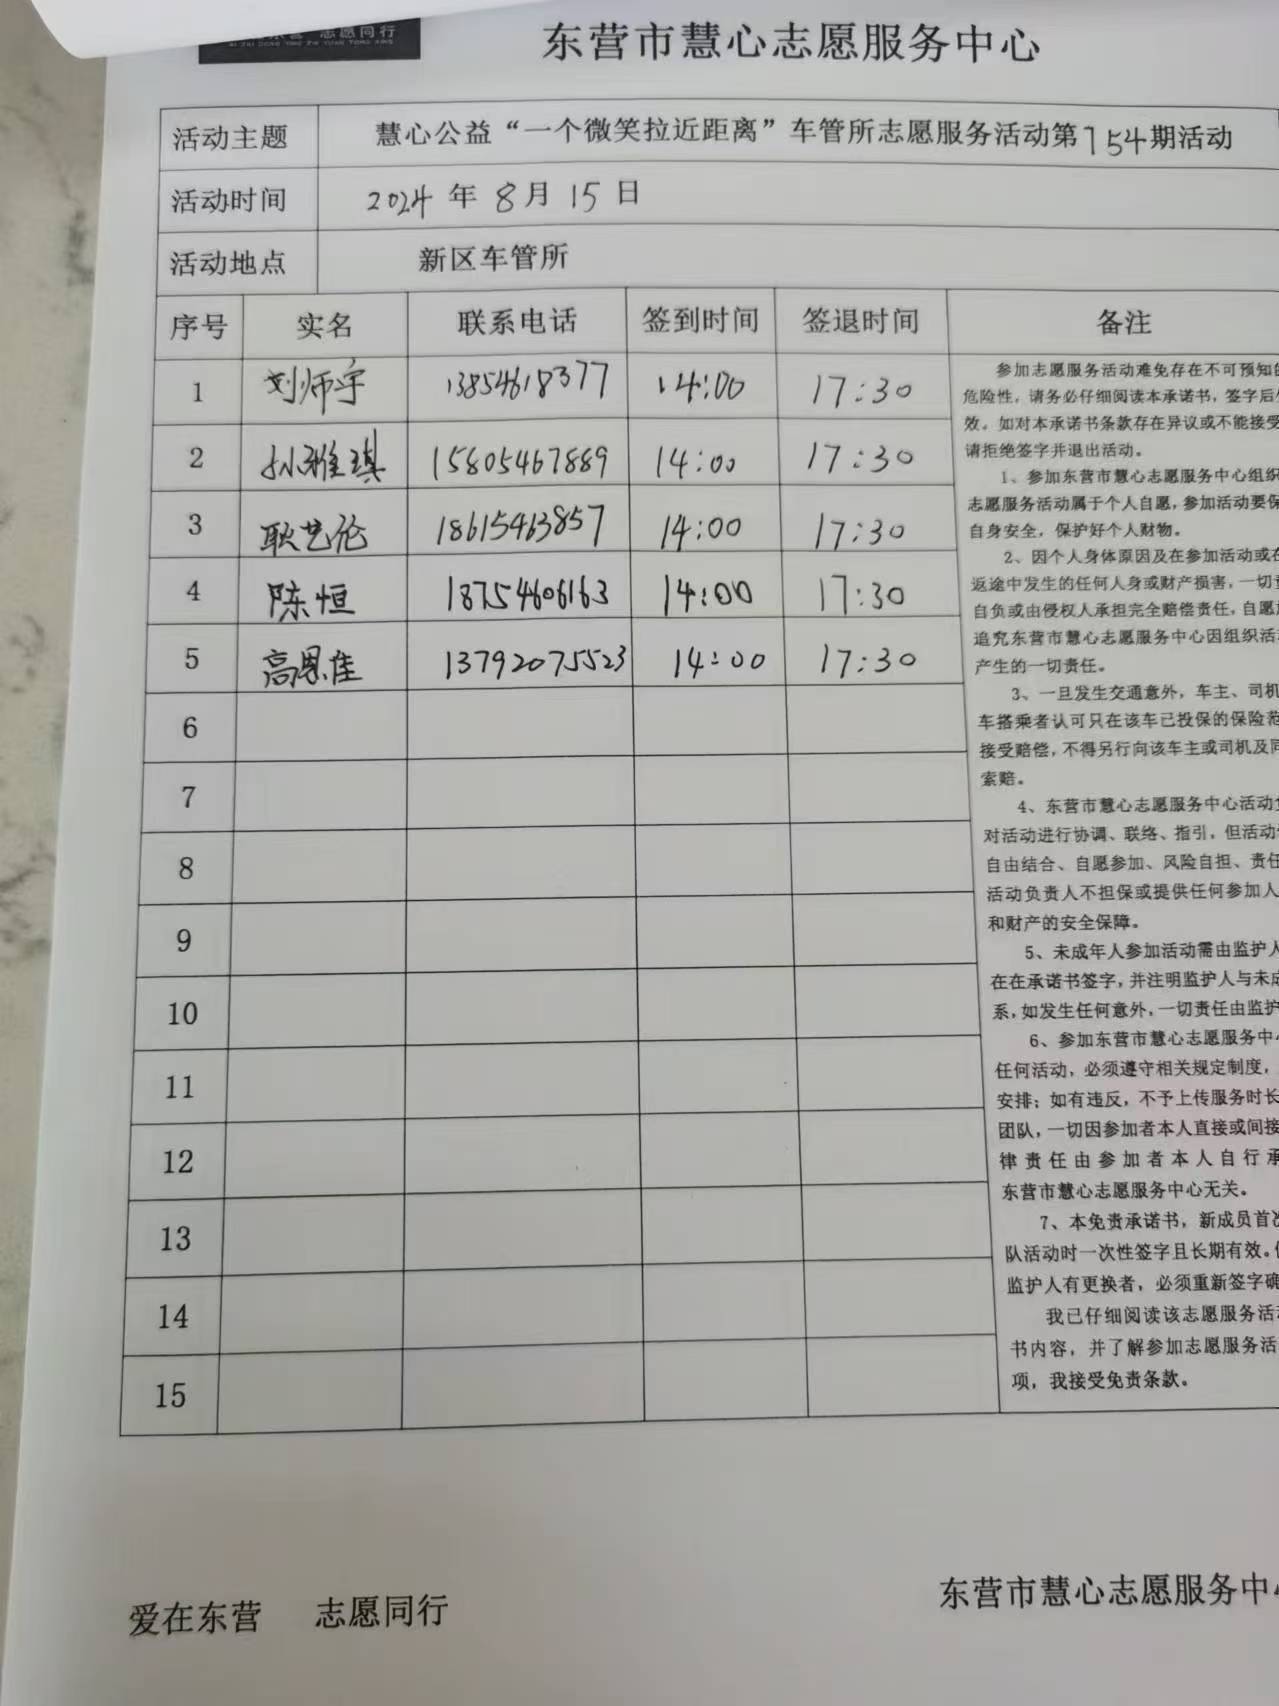 志愿同行
AI ZAI DONG YING ZHI YUAN TONG XING
东营市慧心志愿服务中心
活动主题 慧心公益“一个微笑拉近距离”车管所志愿服务活动第754期活动
活动时间 2024年8月15日
活动地点 新区车管所
序号 实名 联系电话 签到时间 签退时间 备注
1 刘师宇 13854618377 14:00 17:30
2 孙雅琪 15805467889 14:00 17:30
3 耿艺伦 18615463857 14:00 17:30
4 陈恒 18754606163 14:00 17:30
5 高恩佳 13792075523 14:00 17:30
6
7
8
9
10
11
12
13
14
15
参加志愿服务活动难免存在不可预知的
危险性，请务必仔细阅读本承诺书，签字后
效。如对本承诺书条款存在异议或不能接受
请拒绝签字并退出活动。
1、参加东营市慧心志愿服务中心组织
志愿服务活动属于个人自愿，参加活动要保
自身安全，保护好个人财物。
2、因个人身体原因及在参加活动或在
返途中发生的任何人身或财产损害，一切责
自负或由侵权人承担完全赔偿责任，自愿放
追究东营市慧心志愿服务中心因组织活动
产生的一切责任。
3、一旦发生交通意外，车主、司机
车搭乘者认可只在该车已投保的保险范
接受赔偿，不得另行向该车主或司机及同
索赔。
4、东营市慧心志愿服务中心活动负
对活动进行协调、联络、指引，但活动
自由结合、自愿参加、风险自担、责任
活动负责人不担保或提供任何参加人
和财产的安全保障。
5、未成年人参加活动需由监护人
在在承诺书签字，并注明监护人与未成
系，如发生任何意外，一切责任由监护
6、参加东营市慧心志愿服务中心
任何活动，必须遵守相关规定制度，
安排；如有违反，不予上传服务时长
团队，一切因参加者本人直接或间接
律责任由参加者本人自行承
东营市慧心志愿服务中心无关。
7、本免责承诺书，新成员首次
队活动时一次性签字且长期有效。
监护人有更换者，必须重新签字确
我已仔细阅读该志愿服务活动
书内容，并了解参加志愿服务活
项，我接受免责条款。
爱在东营 志愿同行
东营市慧心志愿服务中心